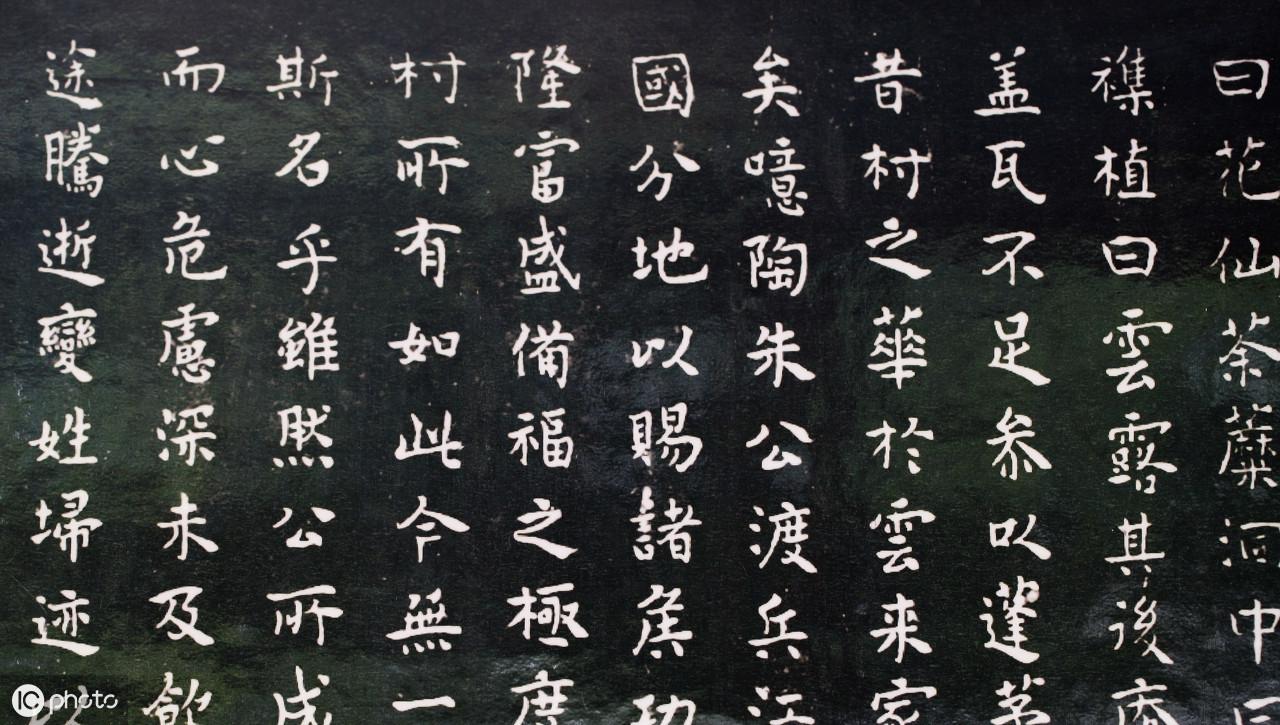 曰花仙荼蘼洞中曰
襍植曰雲露其後南
盖瓦不足叅以蓬茅
昔村之華於雲来家
矣噫陶朱公渡兵江
國分地以賜諸矦功
隆富盛備福之極度
村所有如此今無一
斯名乎雖然公所成
而心危慮深未及飲
途騰逝變姓埽迹以
IC photo